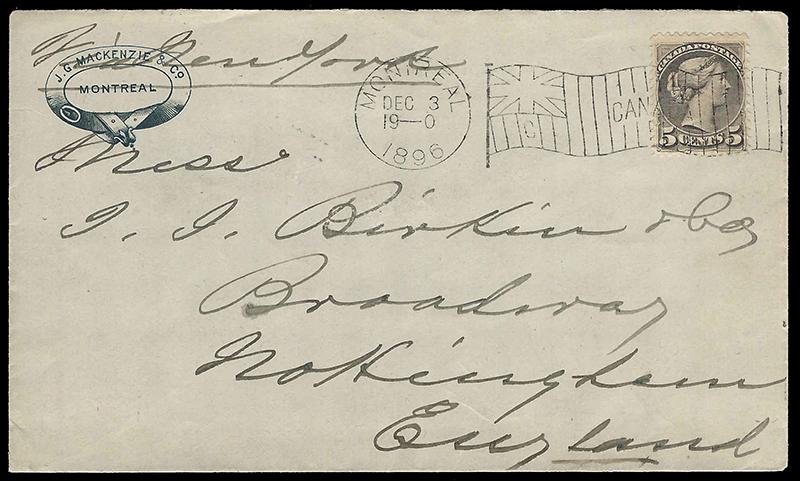 Via New York
J. G. MACKENZIE & Co
MONTREAL
MONTREAL
DEC 3
19—0
1896
C
CANA
CANADA POSTAGE
5 CENTS 5
Mess
I. I. Birkin & Co
Broadway
Nottingham
England